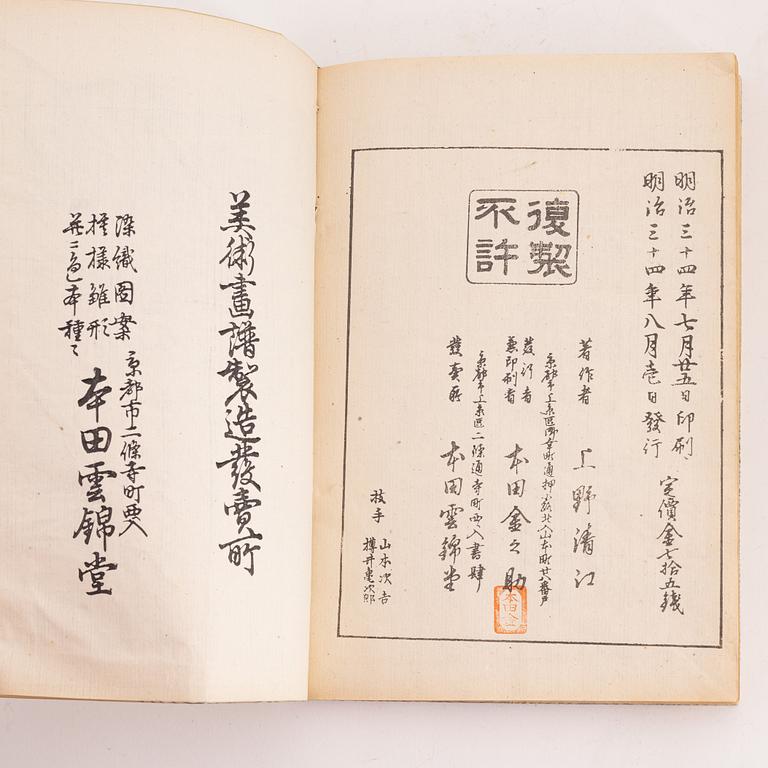 明治三十四年七月廿五日印刷
明治三十四年八月壱日發行
定價金七拾五錢
復製
不許
著作者
上野清江
京都市上京區御幸町通押小路北入山本町廿八番戸
發行者
兼印刷者
本田金之助
京都市上京區二條通寺町西入書肆
發賣所
本田雲錦堂
技手
山本次吉
美術畫譜製造發賣所
染織圖案
模様雛形
并ニ色本種〻
京都市二條寺町西入
本田雲錦堂